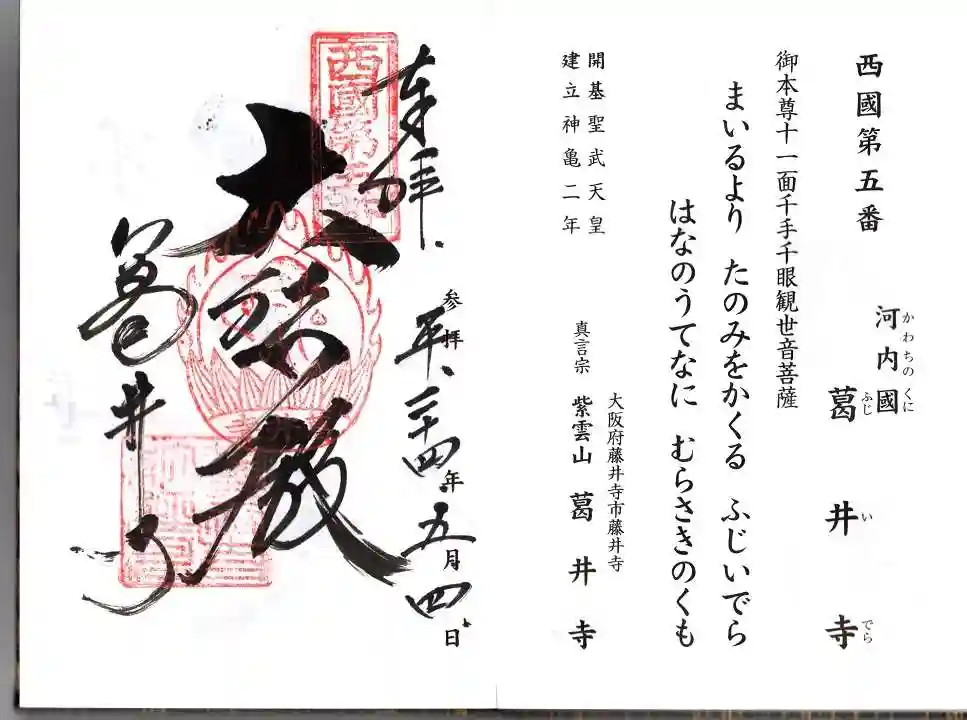 西國第五番
河内國
かわちのくに
葛井寺
ふじいでら
御本尊十一面千手千眼観世音菩薩
まいるより たのみをかくる ふじいでら
はなのうてなに むらさきのくも
開基聖武天皇
建立神亀二年
大阪府藤井寺市藤井寺
真言宗 紫雲山 葛井寺
奉拝
参拝
平、二十四年五月四日
西國第五番
大悲殿
葛井寺